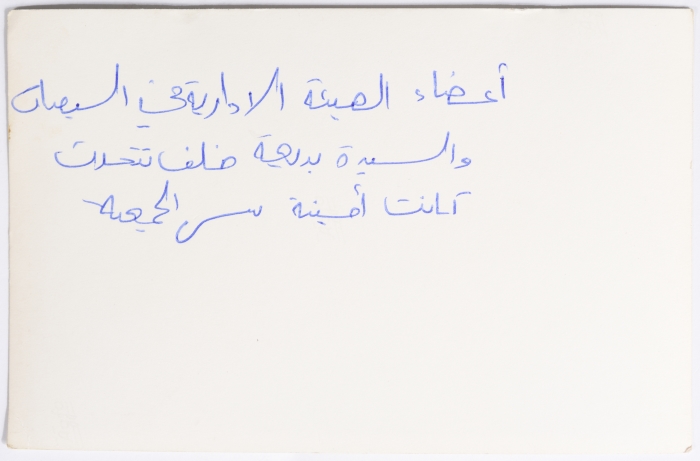 أعضاء الهيئة الادارية في السبعينات
والسيدة بديعة خلف تتحدث
كانت أمينة سر الجمعية